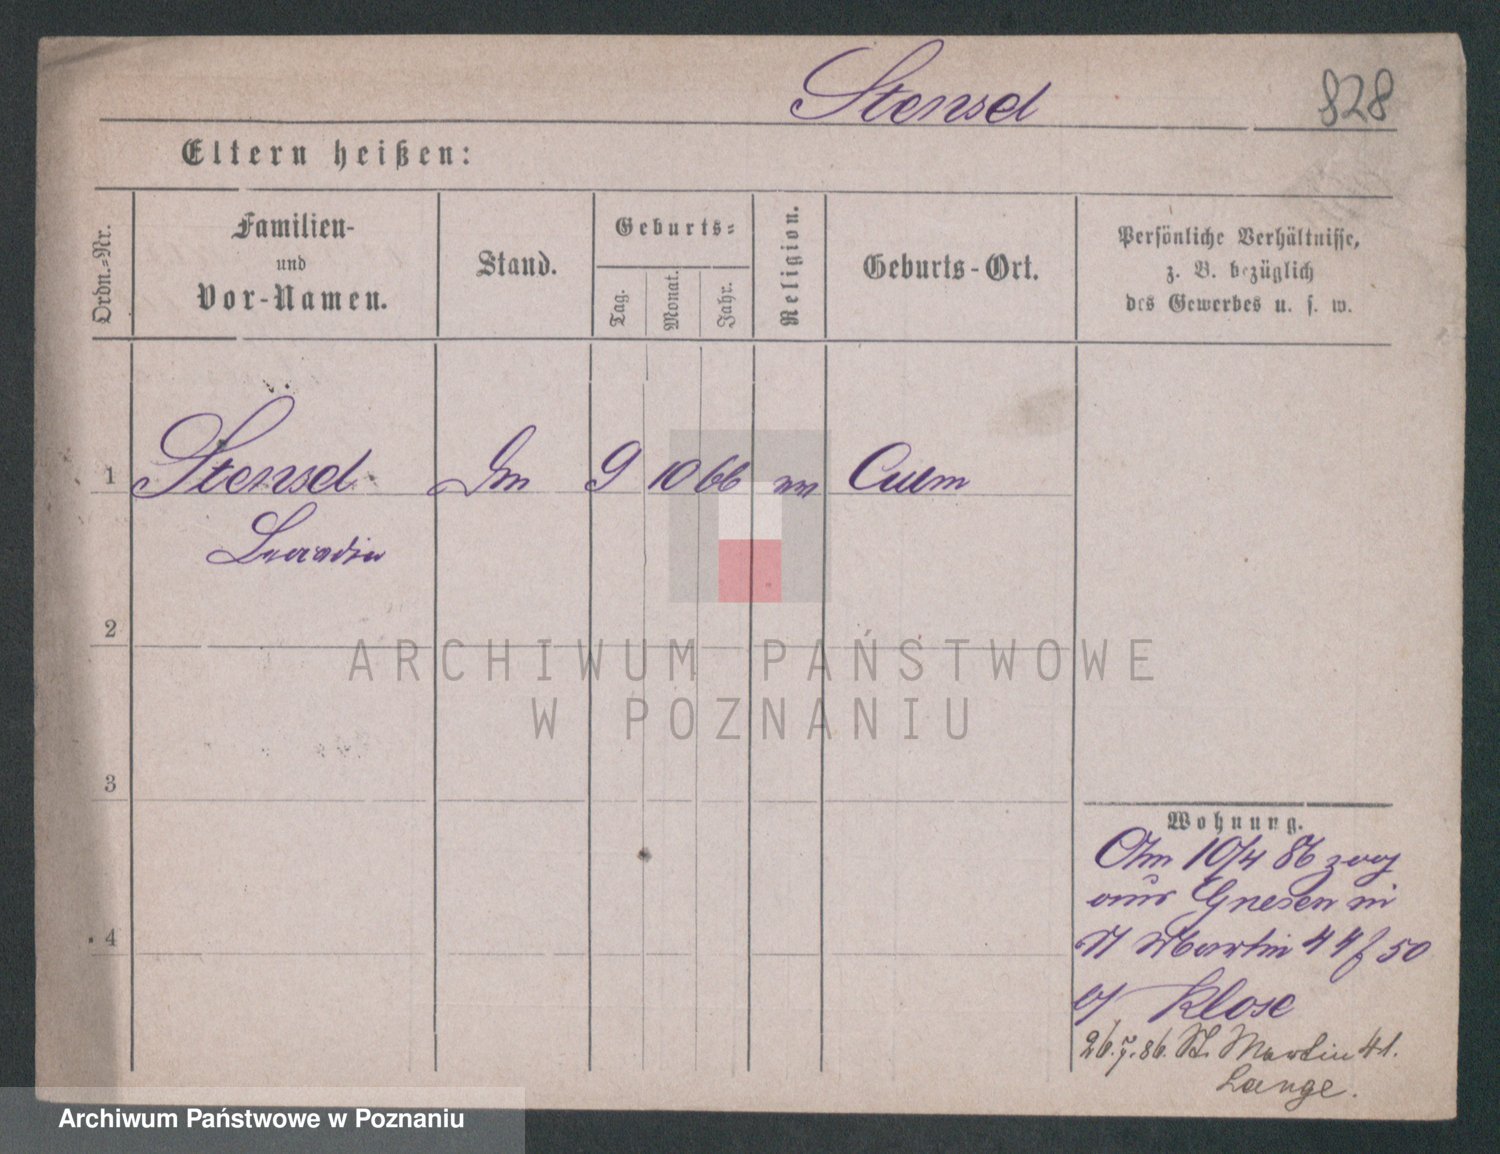 Stensel 828
Eltern heißen:
Ordn.-Nr.
Familien-
und
Vor-Namen.
Stand.
Geburts-
Tag.
Monat.
Jahr.
Religion.
Geburts-Ort.
Persönliche Verhältnisse,
z. B. bezüglich
des Gewerbes u. s. w.
1 Stensel 9 10 66 Culm
2
3
4
Wohnung.
Am 10/4 86 zog
aus Gnesen in
St Martin 44 f 50
b/ Klose
26.7.86. St. Martin 41.
Lange.
ARCHIWUM PAŃSTWOWE
W POZNANIU
Archiwum Państwowe w Poznaniu